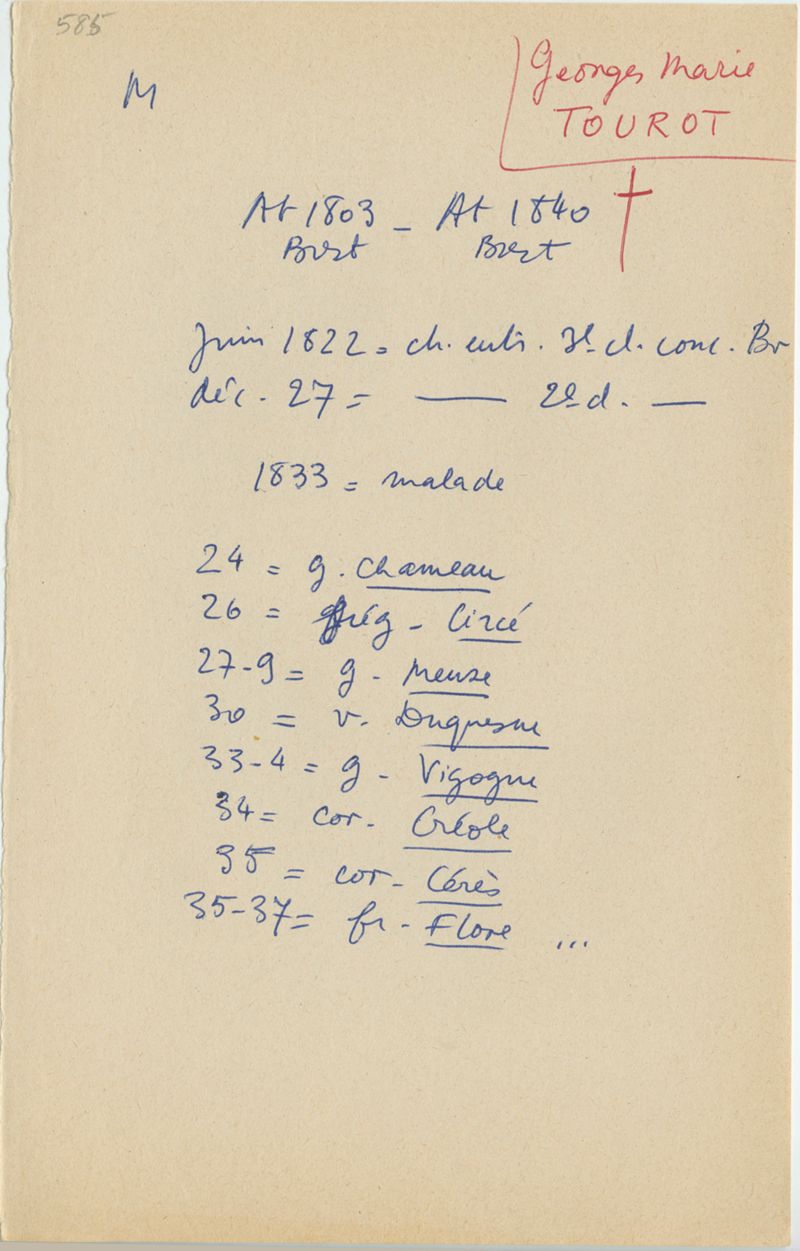 585
M
Georges Marie
TOUROT
At 1803 - At 1840
Brest Brest
Juin 1822 = ch. entr. 3e cl. conc. Br
déc. 27 = —— 2e cl. ——
1833 = malade
24 = g. Chameau
26 = frég - Circé
27-9 = g - Meuse
30 = v. Duquesne
33-4 = g - Vigogne
34 = cor - Créole
35 = cor - Cérès
35-37 = fr - Flore ...